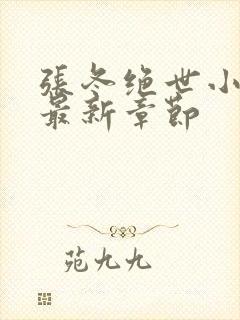 張冬绝世小
最新章節
苑九九